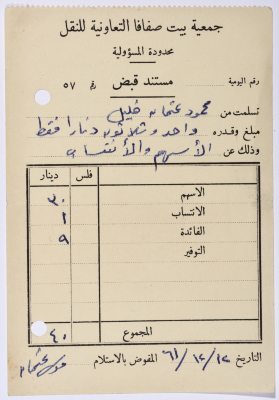 جمعية بيت صفافا التعاونية للنقل
محدودة المسؤولية
رقم اليومية مستند قبض رقم ٥٧
تسلمت من محمود عثمان خليل
مبلغ وقدره واحد وثلاثون دينارا فقط
وذلك عن الأسهم والأنتساب
فلس دينار
الاسهم ٣٠
الانتساب ١
الفائدة ٩
التوفير
المجموع ٤٠
التاريخ ١٢/١٢/٦١ المفوض بالاستلام